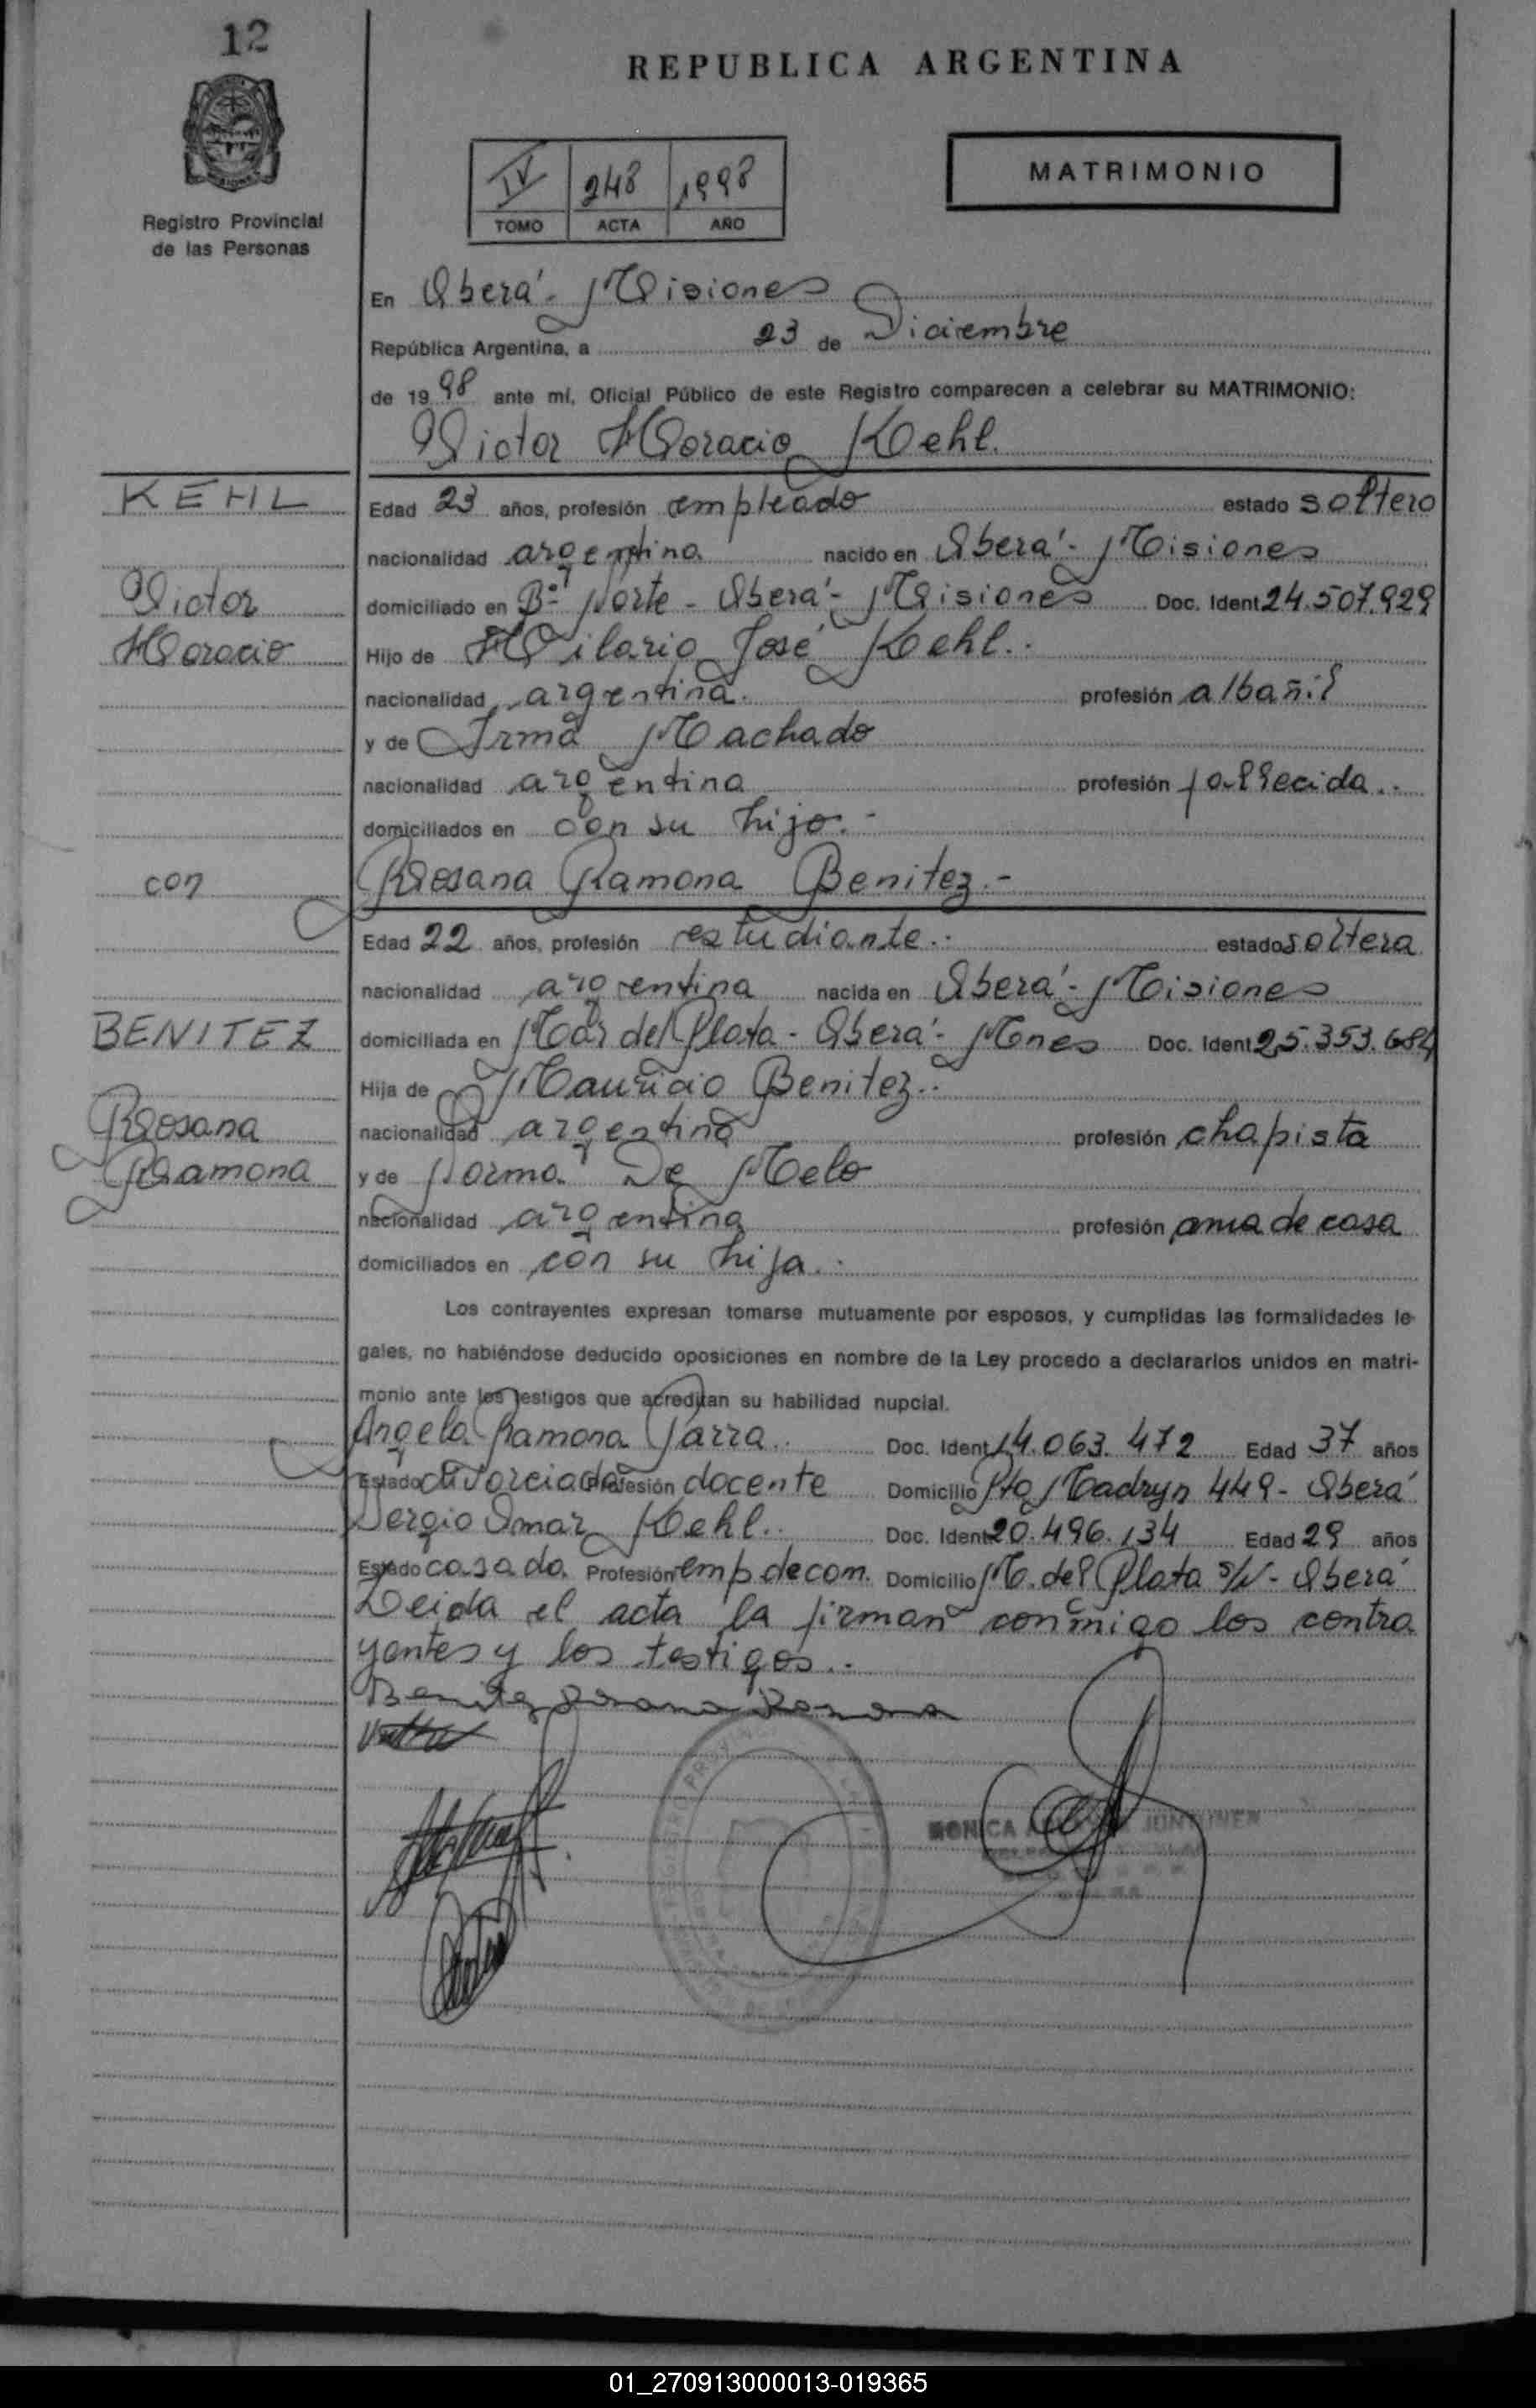 12
REPUBLICA ARGENTINA
MATRIMONIO
IV 248 1998
TOMO ACTA AÑO
Registro Provincial
de las Personas
En Oberá - Misiones
República Argentina, a 23 de Diciembre
de 1998 ante mí, Oficial Público de este Registro comparecen a celebrar su MATRIMONIO:
Victor Horacio Kehl.
KEHL
Edad 23 años, profesión empleado estado soltero
nacionalidad argentina nacido en Oberá - Misiones
Victor
domiciliado en Bº Norte - Oberá - Misiones Doc. Ident 24.507.929
Horacio
Hijo de Hilario José Kehl.
nacionalidad argentina. profesión albañil
y de Irma Machado
nacionalidad argentina profesión fallecida.
domiciliados en con su hijo.-
con
Rosana Ramona Benitez.-
Edad 22 años, profesión estudiante. estado soltera
nacionalidad argentina nacida en Oberá - Misiones
BENITEZ
domiciliada en Mar del Plata - Oberá - Mnes Doc. Ident 25.353.684
Hija de Mauricio Benitez.
Rosana
nacionalidad argentina profesión chapista
Ramona
y de Norma De Melo
nacionalidad argentina profesión ama de casa
domiciliados en con su hija.
Los contrayentes expresan tomarse mutuamente por esposos, y cumplidas las formalidades le-
gales, no habiéndose deducido oposiciones en nombre de la Ley procedo a declararlos unidos en matri-
monio ante los testigos que acreditan su habilidad nupcial.
Angela Ramona Parra. Doc. Ident 14.063.472 Edad 37 años
Estado divorciada Profesión docente Domicilio Pto Madryn 449 - Oberá
Sergio Omar Kehl. Doc. Ident 20.496.134 Edad 29 años
Estado casado. Profesión emp de com. Domicilio M. del Plata s/N - Oberá
Leida el acta la firman conmigo los contra
yentes y los testigos.
Benitez Rosana Ramona
MONICA
01_270913000013-019365